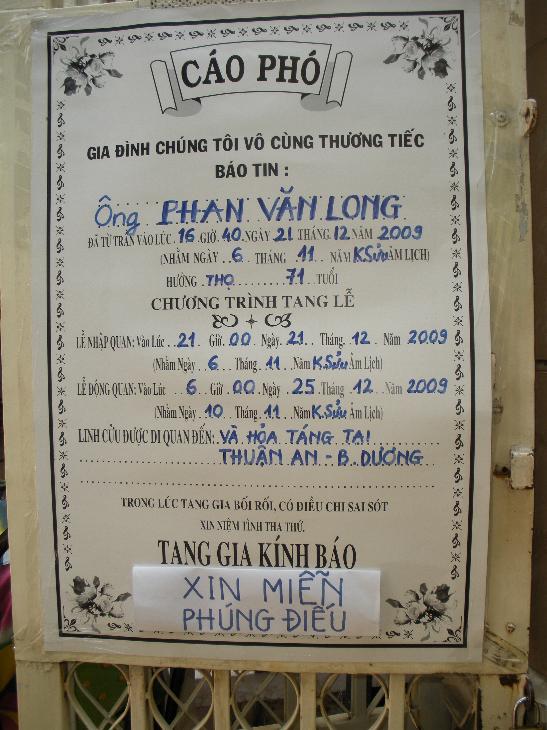 CÁO PHÓ
GIA ĐÌNH CHÚNG TÔI VÔ CÙNG THƯƠNG TIẾC
BÁO TIN :
Ông PHAN VĂN LONG
ĐÃ TỪ TRẦN VÀO LÚC 16 GIỜ 40 NGÀY 21 THÁNG 12 NĂM 2009
(NHẰM NGÀY 6 THÁNG 11 NĂM K SỬU ÂM LỊCH)
HƯỞNG THỌ 71 TUỔI
CHƯƠNG TRÌNH TANG LỄ
LỄ NHẬP QUAN: Vào Lúc 21 Giờ 00 Ngày 21 Tháng 12 Năm 2009
(Nhằm Ngày 6 Tháng 11 Năm K.Sửu Âm Lịch)
LỄ ĐỘNG QUAN: Vào Lúc 6 Giờ 00 Ngày 25 Tháng 12 Năm 2009
(Nhằm Ngày 10 Tháng 11 Năm K.Sửu Âm Lịch)
LINH CỬU ĐƯỢC DI QUAN ĐẾN: VÀ HỎA TÁNG TẠI
THUẬN AN - B. DƯƠNG
TRONG LÚC TANG GIA BỐI RỐI, CÓ ĐIỀU CHI SAI SÓT
XIN NIỆM TÌNH THA THỨ.
TANG GIA KÍNH BÁO
XIN MIỄN
PHÚNG ĐIẾU